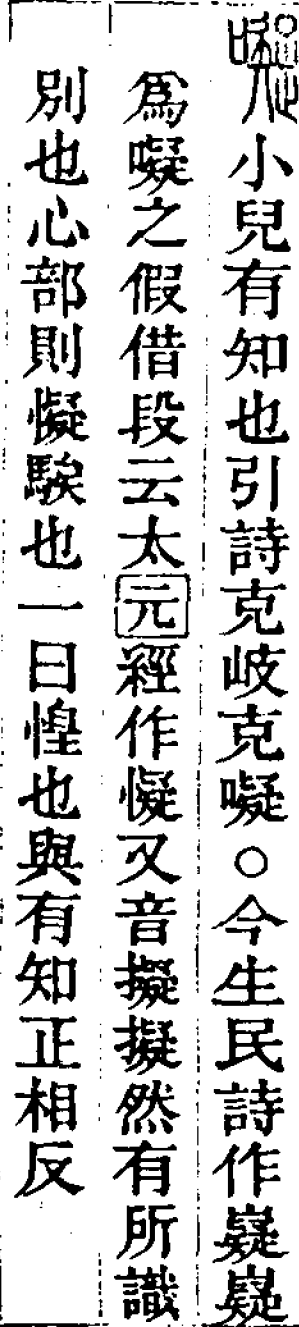 㘈小兒有知也引詩克岐克㘈○今生民詩作嶷嶷
爲㘈之假借段云太元經作懝又音擬擬然有所識
別也心部則懝騃也一曰惶也與有知正相反